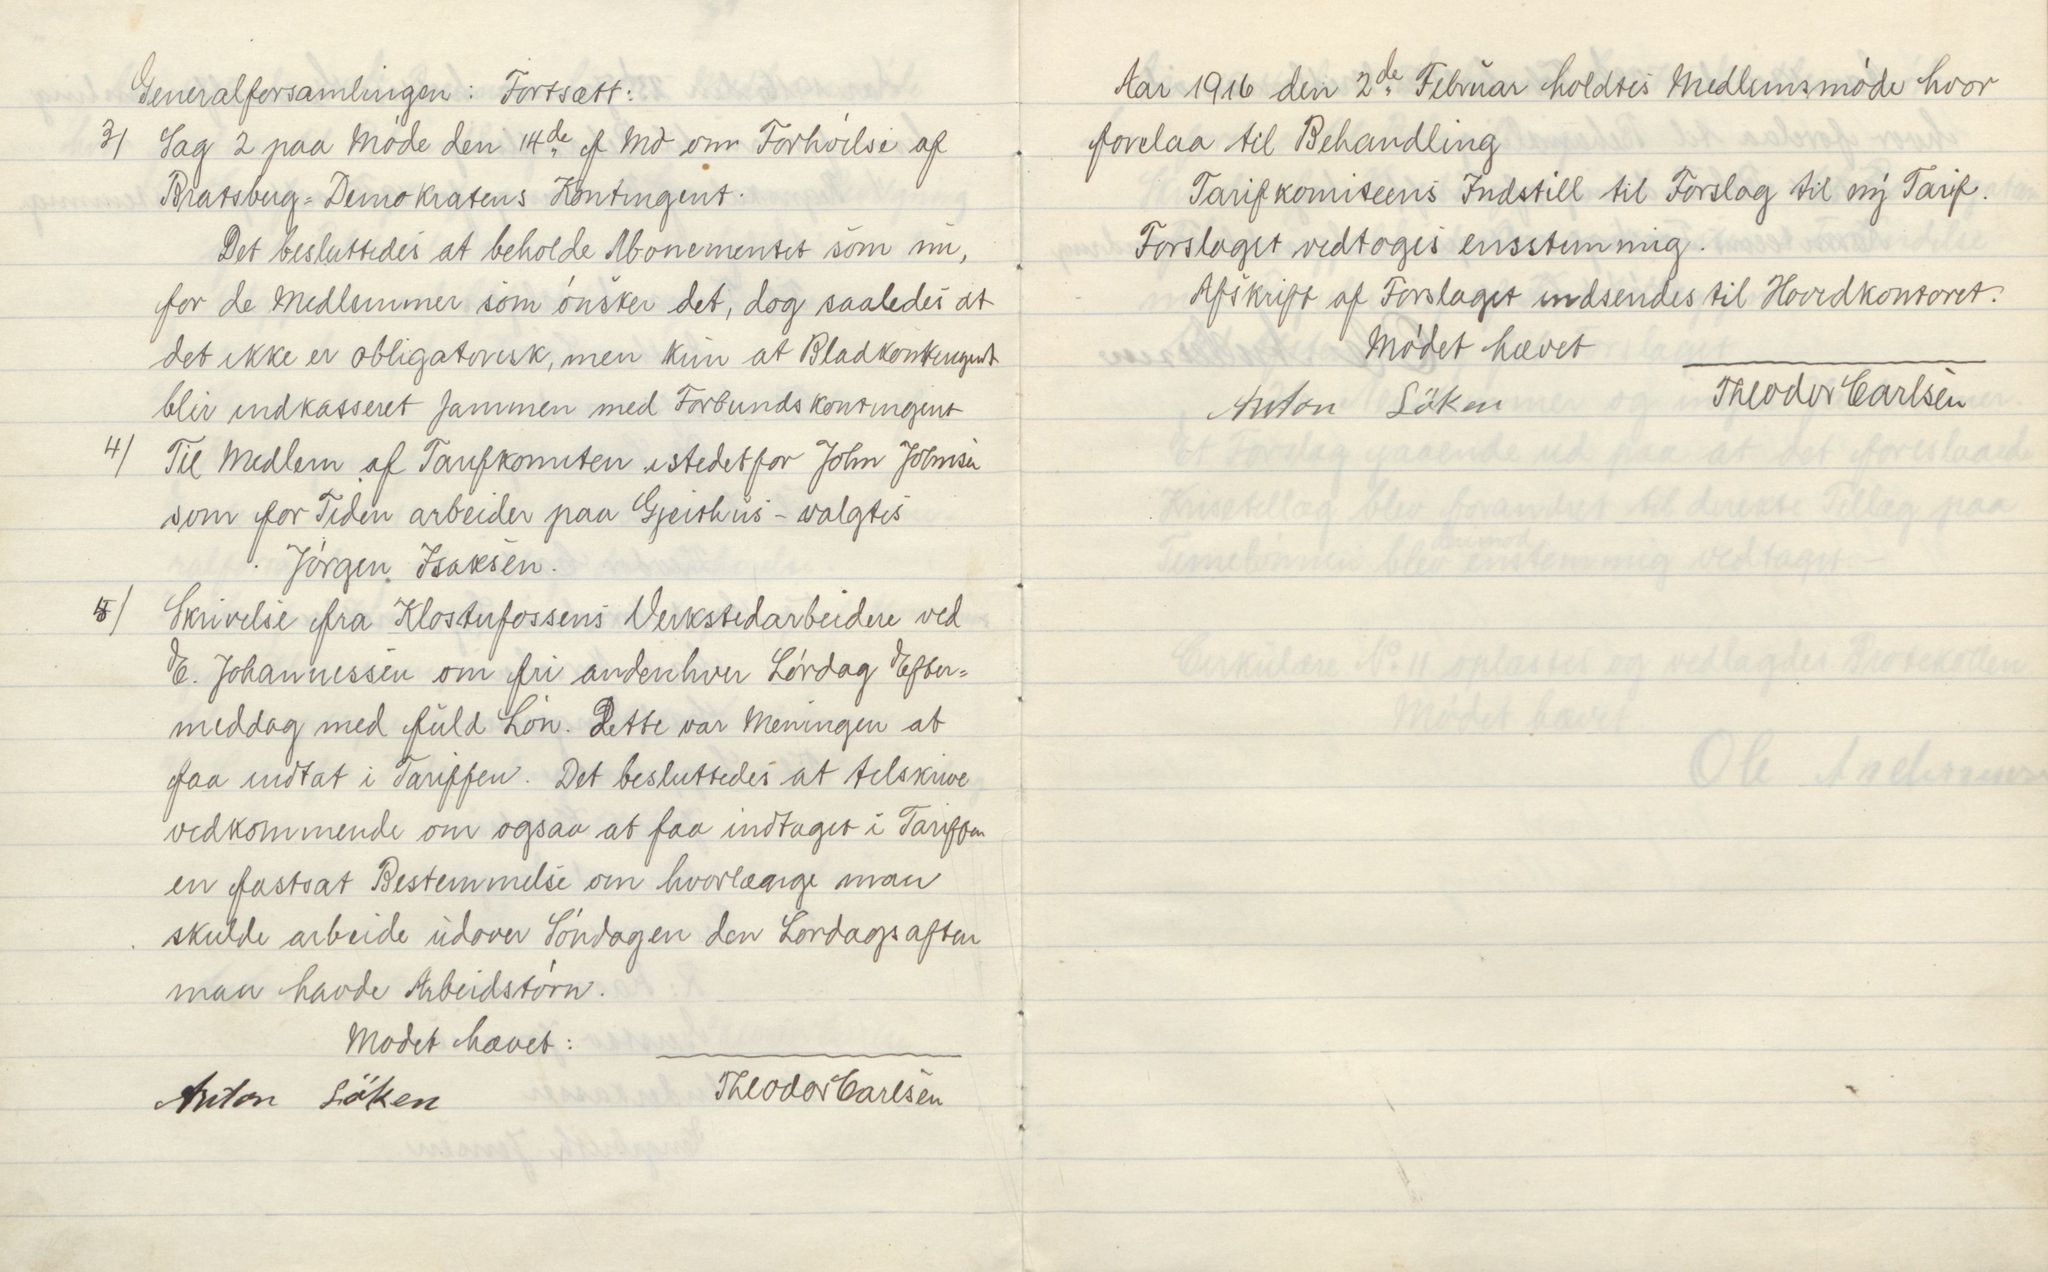 Generalforsamlingen: Fortsatt:
3/ Sag 2 paa Møde den 14de f Md om Forhøilse af
Bratsberg-Demokratens Kontingent.
Det besluttedes at beholde Abonementet som nu,
for de Medlemmer som ønsker det, dog saaledes at
det ikke er obligatorisk, men kun at Bladkontingent
blir indkasseret sammen med Forbundskontingent
4/ Til Medlem af Tarifkomiten istedetfor John Johnsen
som for Tiden arbeider paa Gjeithus - valgtes
Jørgen Isaksen.
5/ Skrivelse fra Klosterfossens Verkstedarbeidere ved
E. Johannessen om fri andenhver Lørdag Efter-
meddag med fuld Løn. Dette var Meningen at
faa indtat i Tariffen. Det besluttedes at tilskrive
vedkommende om ogsaa at faa indtaget i Tariffen
en fastsat Bestemmelse om hvorlænge man
skulde arbeide udover Søndagen den Lørdagsaften
man havde Arbeidstørn.
Mødet hævet:
Anton Löken Theodor Carlsen
Aar 1916 den 2de Februar holdtes Medlemsmøde hvor
forelaa til Behandling
Tarifkomiteens Indstill til Forslag til ny Tarif.
Forslaget vedtoges ensstemmig.
Afskrift af Forslaget indsendes til Hovedkontoret.
Mødet hævet
Anton Löken Theodor Carlsen
Et Forslag gaaende ud paa at det foreslaaede
Krisetillæg blev forandret til direkte Tillæg paa
Timelønnen blev enstemmig vedtaget
Cirkulære No 11 oplæstes vedlagdes Protokollen
Mødet hævet
Ole Andersen